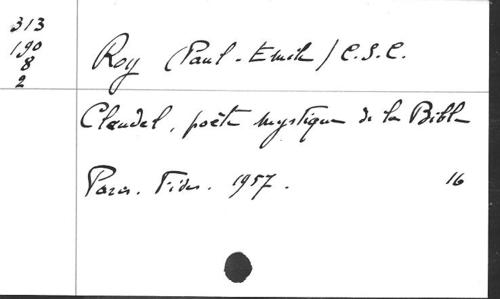 313
190
8
2
Roy (Paul-Emile) C.S.C.
Claudel, poète mystique de la Bible
Paris. Fides. 1957. 16